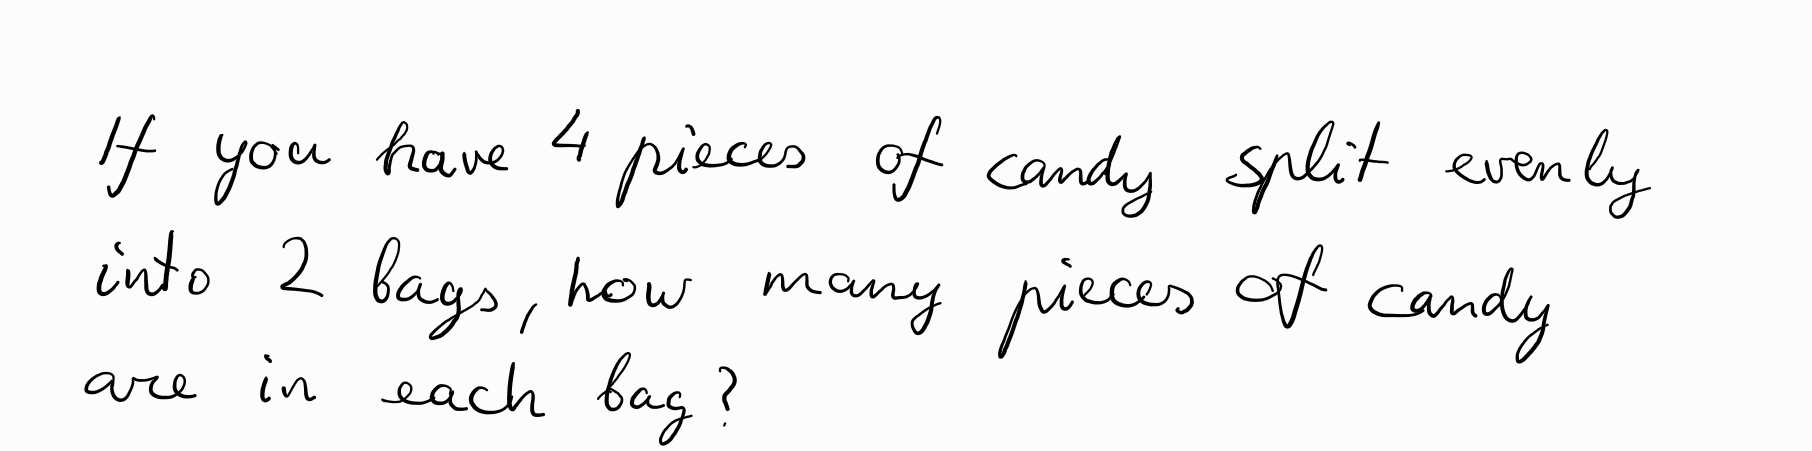 If you have 4 pieces of candy split evenly
into 2 bags, how many pieces of candy
are in each bag?